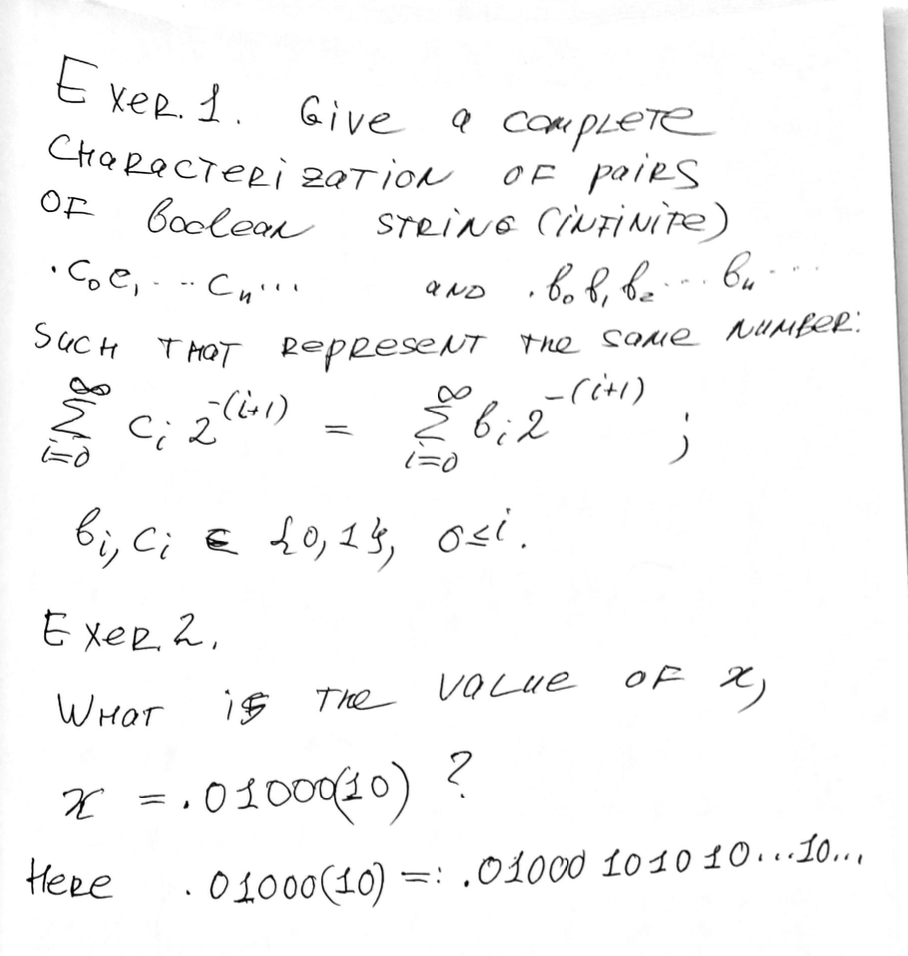 Exer. 1. Give a complete
characterization of pairs
of boolean string (infinite)
.c₀c₁...cₙ... and .b₀b₁b₂...bₙ...
such that represent the same number:
∑_{i=0}^{∞} cᵢ 2^{-(i+1)} = ∑_{i=0}^{∞} bᵢ 2^{-(i+1)} ;
bᵢ, cᵢ ∈ {0,1}, 0≤i.
Exer. 2.
What is the value of x,
x = .01000(10) ?
Here .01000(10) =: .01000 101010...10...